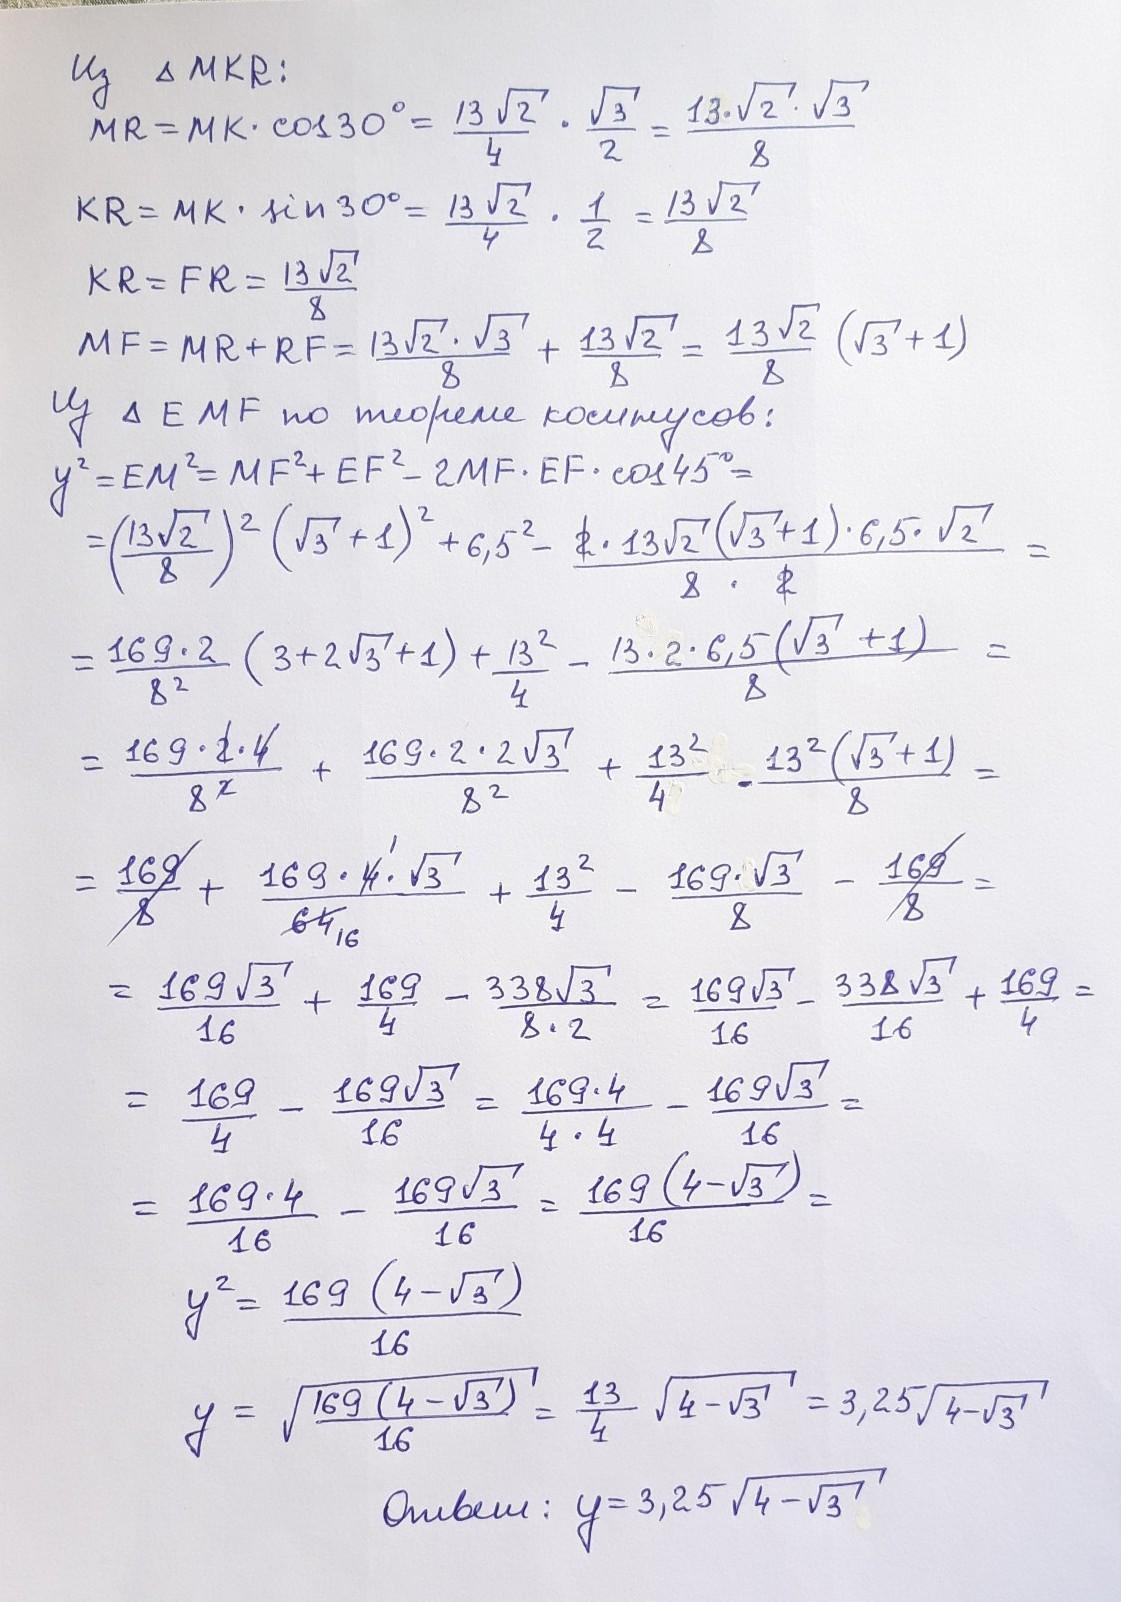 Из △MKR:
MR = MK · cos30° = 13√2/4 · √3/2 = 13·√2·√3/8
KR = MK · sin30° = 13√2/4 · 1/2 = 13√2/8
KR = FR = 13√2/8
MF = MR + RF = 13√2·√3/8 + 13√2/8 = 13√2/8 (√3 + 1)
Из △EMF по теореме косинусов:
y² = EM² = MF² + EF² - 2MF · EF · cos45° =
= (13√2/8)² (√3 + 1)² + 6,5² - 2 · 13√2(√3+1) · 6,5 · √2/8 · 2 =
= 169·2/8² (3+2√3+1) + 13²/4 - 13·2·6,5(√3+1)/8 =
= 169·2·4/8² + 169·2·2√3/8² + 13²/4 - 13²(√3+1)/8 =
= 169/8 + 169·4¹·√3/64 16 + 13²/4 - 169·√3/8 - 169/8 =
= 169√3/16 + 169/4 - 338√3/8·2 = 169√3/16 - 338√3/16 + 169/4 =
= 169/4 - 169√3/16 = 169·4/4·4 - 169√3/16 =
= 169·4/16 - 169√3/16 = 169(4-√3)/16 =
y² = 169(4-√3)/16
y = √(169(4-√3)/16) = 13/4 √(4-√3) = 3,25√(4-√3)
Ответ: y = 3,25√(4-√3)